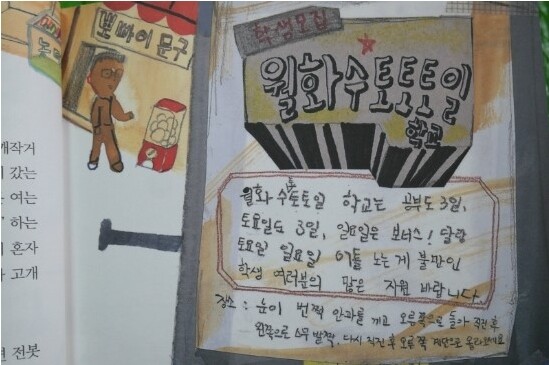 뽀빠이 문구
개작거
이 갔는
는 여는
하는
이 혼자
고개
전봇
학생모집
월화수토토토일
학교
월화 수토토토일 학교는 공부도 3일,
토요일도 3일, 일요일은 보너스! 달랑
토요일 일요일 이틀 노는게 불만인
학생 여러분의 많은 지원 바랍니다.
장소 : 눈이 번쩍 안과를 끼고 오른쪽으로 돌아 직진 후
왼쪽으로 스무 발짝. 다시 직진 후 오른쪽 계단으로 올라오세요